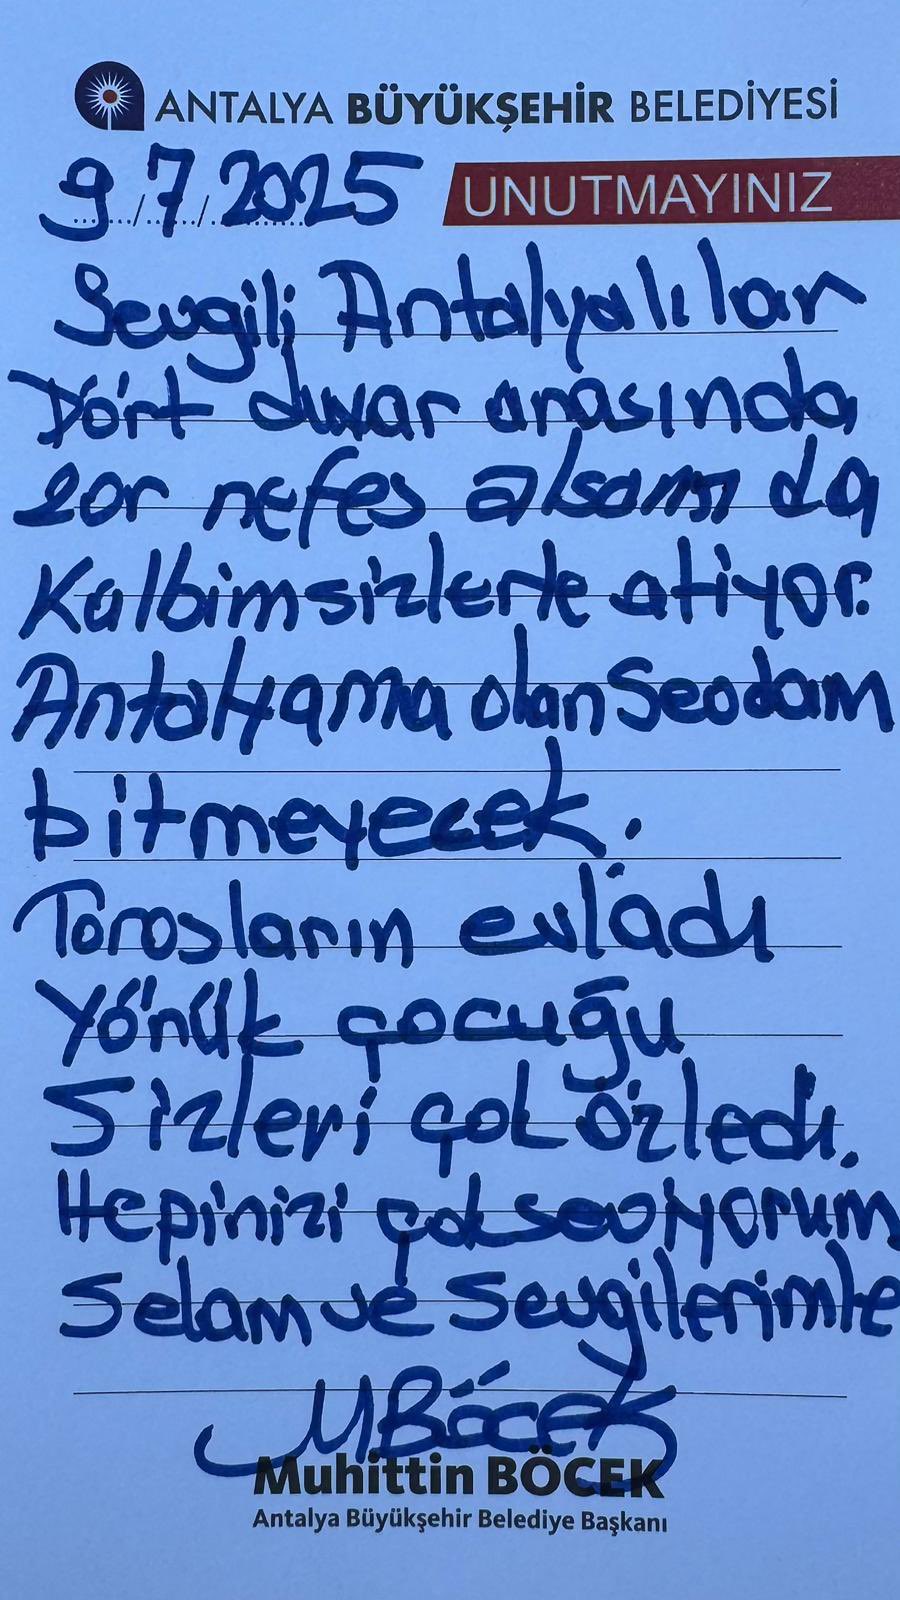 ANTALYA BÜYÜKŞEHİR BELEDİYESİ
9/7/2025
UNUTMAYINIZ
Sevgili Antalyalılar
Dört duvar arasında
zor nefes alsam da
Kalbim sizlerle atiyor.
Antalyama olan Sevdam
bitmeyecek.
Torosların evladı
Yörük çocuğu
Sizleri çok özledi.
Hepinizi çok seviyorum
Selam ve Sevgilerimle
MBöcek
Muhittin BÖCEK
Antalya Büyükşehir Belediye Başkanı